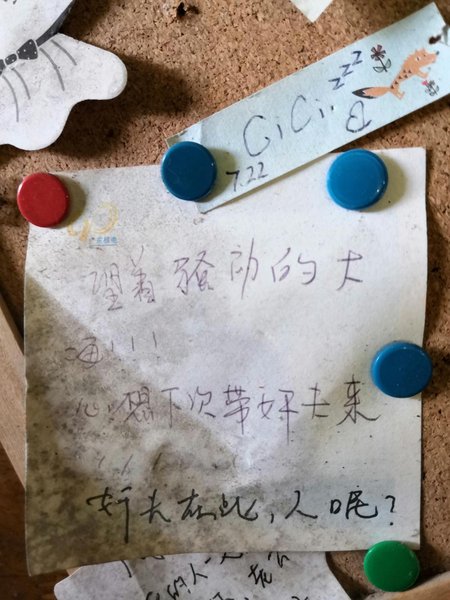 CiCi zzz
7.22
望着骚动的大
海!!!
心想下次带奸夫来
!!!
奸夫在此,人呢?